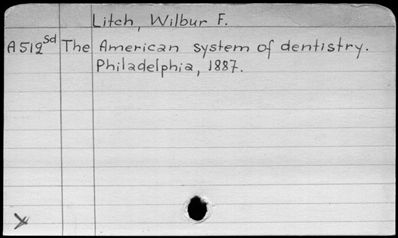 Litch, Wilbur F.
A512sd The American system of dentistry.
Philadelphia, 1887.